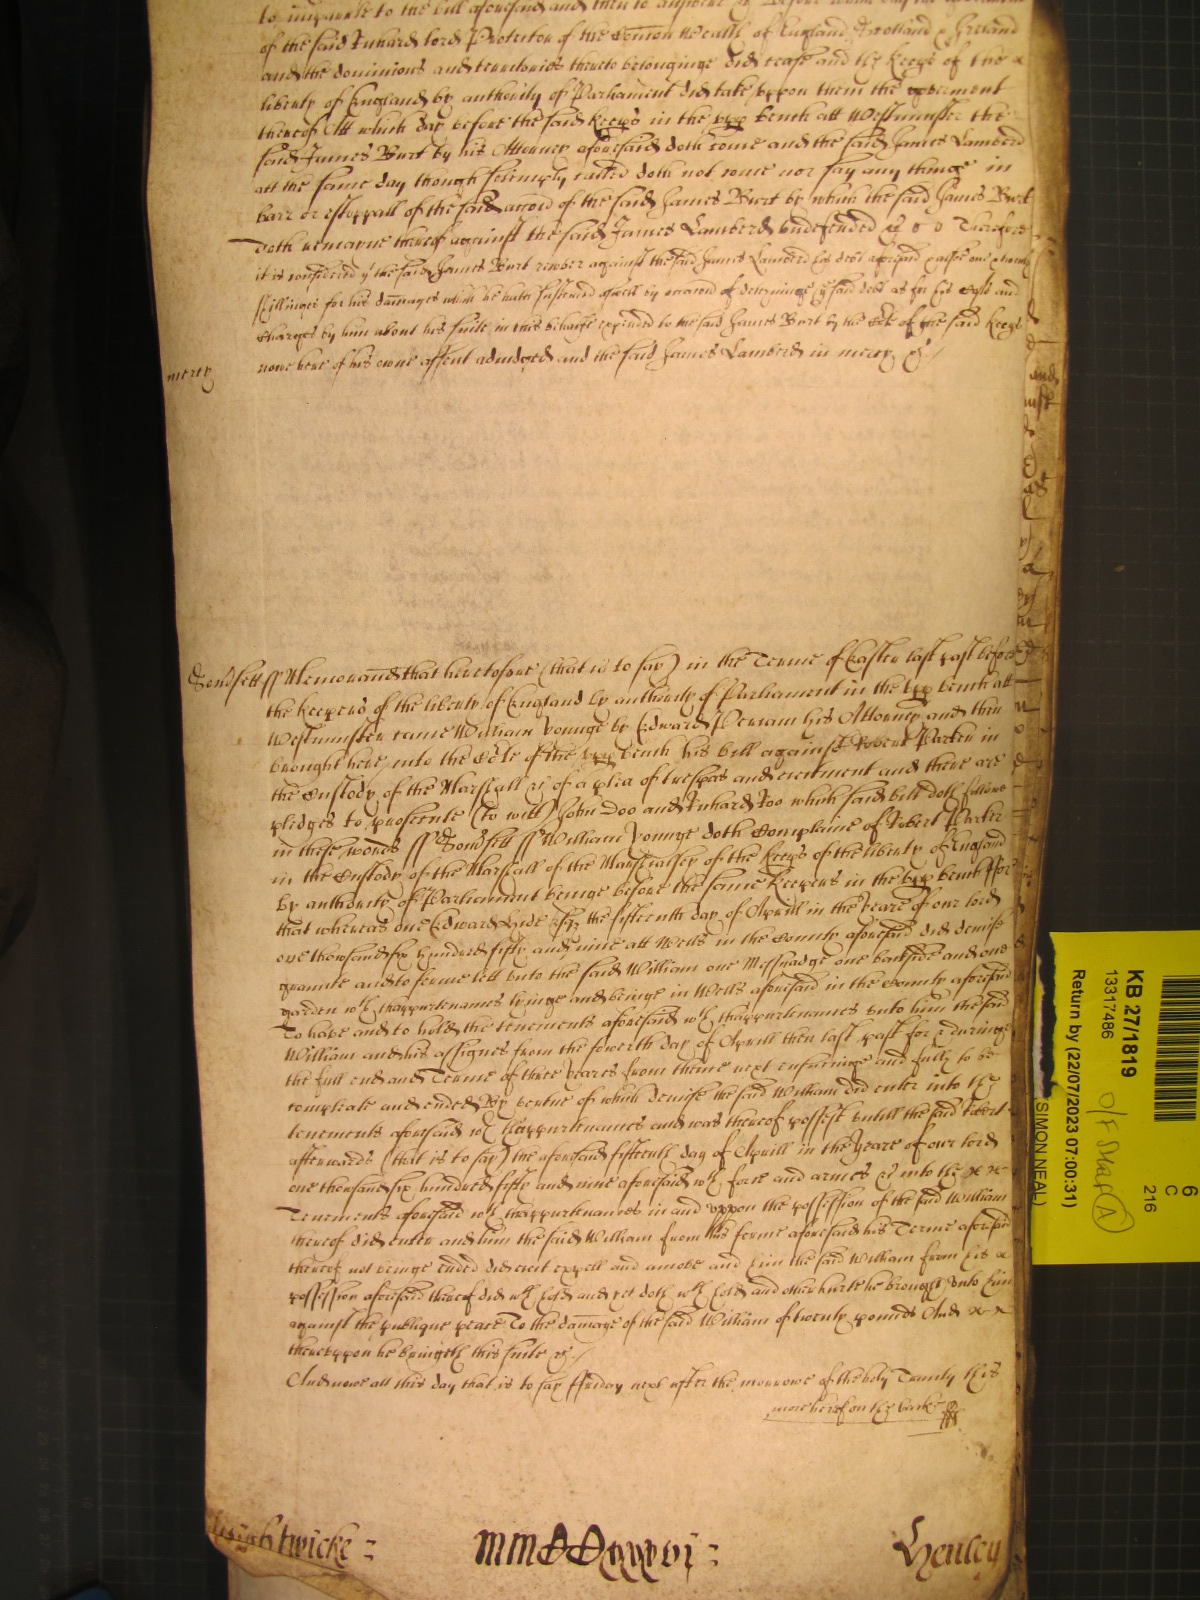 to imparle to the bill aforesaid and then to answere &c Before which day the
of the said Richard lord Protector of the Comon wealth of England Scotland & Ireland
and the dominions and territories thereto belonginge did cease and the Keeps of the
liberty of England by authority of Parliament did take uppon them the goverment
thereof Att which day before the said Keeps in the upp bench att Westminster the
said James Burt by his Attorney aforesaid doth come and the said James Lamberd
att the same day though solemply called doth not come nor say any thinge in
barr or estoppall of the said accon of the said James Burt by which the said James Burt
doth remayne thereof against the said James Lamberd undefended &c Therefore
it is considered yt the said James Burt recover against the said James Lamberd his debt aforesaid
shillinges for his damages which he hath susteined aswell by occacon of deteyninge ye said debt as for his Costs and
Charges by him about his suite in this behalfe expended to the said James Burt by the Cort of the said Keeps
nowe here of his owne assent adiudged and the said James Lamberd in mercy &c
mercy
Somsett ss Memorand that heretofore (that is to say) in the Terme of Easter last past before
the keepers of the liberty of England by authority of Parliament in the upp bench att
Westminster came William Younge by Edward Perram his Attorney and then
brought here into the Corte of the upp bench his bill against Robert Parker in
the Custody of the Marshall &c of a plea of trespas and eiectment and there are
pledges to prosecute (to witt) John Doo and Richard Roo which said bill doth followe
in these words ss Somsett ss William Younge doth Complaine of Robert Parker
in the Custody of the Marshall of the Marshalsey of the Keeps of the liberty of England
by authority of Parliament beinge before the same Keepers in the upp bench ffor
that whereas one Edward Hide Esqr the fifteenth day of Aprill in the yeare of our lord
one thowsand six hundred fifty and nine att Wells in the County aforesaid did demise
graunte and to ferme lett unto the said William one Messuadge one backside and one
garden wth thappurtenances lyinge and beinge in Wells aforesaid in the County aforesaid
To have and to hold the tenements aforesaid wth thappurtenances unto him the said
William and his assignes from the fowerth day of Aprill then last past for & duringe
the full end and Terme of three yeares from thence next ensueinge and fully to be
compleate and ended By vertue of which demise the said William did enter into the
tenements aforesaid wth thappurtenances and was thereof possest untill the said Robert
afterwards (that is to say) the aforesaid fifteenth day of Aprill in the yeare of our lord
one thousand six hundred fifty and nine aforesaid wth force and armes &c into the
Tenements aforesaid wth thappurtenances in and uppon the possession of the said William
thereof did enter and him the said William from his ferme aforesaid his Terme aforesaid
thereof not beinge ended did eiect expell and amove and him the said William from his
possession aforesaid thereof did wth hold and yet doth wth hold and other hurte he brought unto him
against the publique peace To the damage of the said William of twenty pounds And
thereuppon he bringeth this suite &c
And nowe att this day that is to say ffriday next after the morrowe of the holy Trinity this
more hereof on the backe
wightwicke :
MMDDxxxvi :
Henley
KB 27/1819
13317486
Return by (22/07/2023 07:00:31)
(SIMON NEAL)
6
C
216